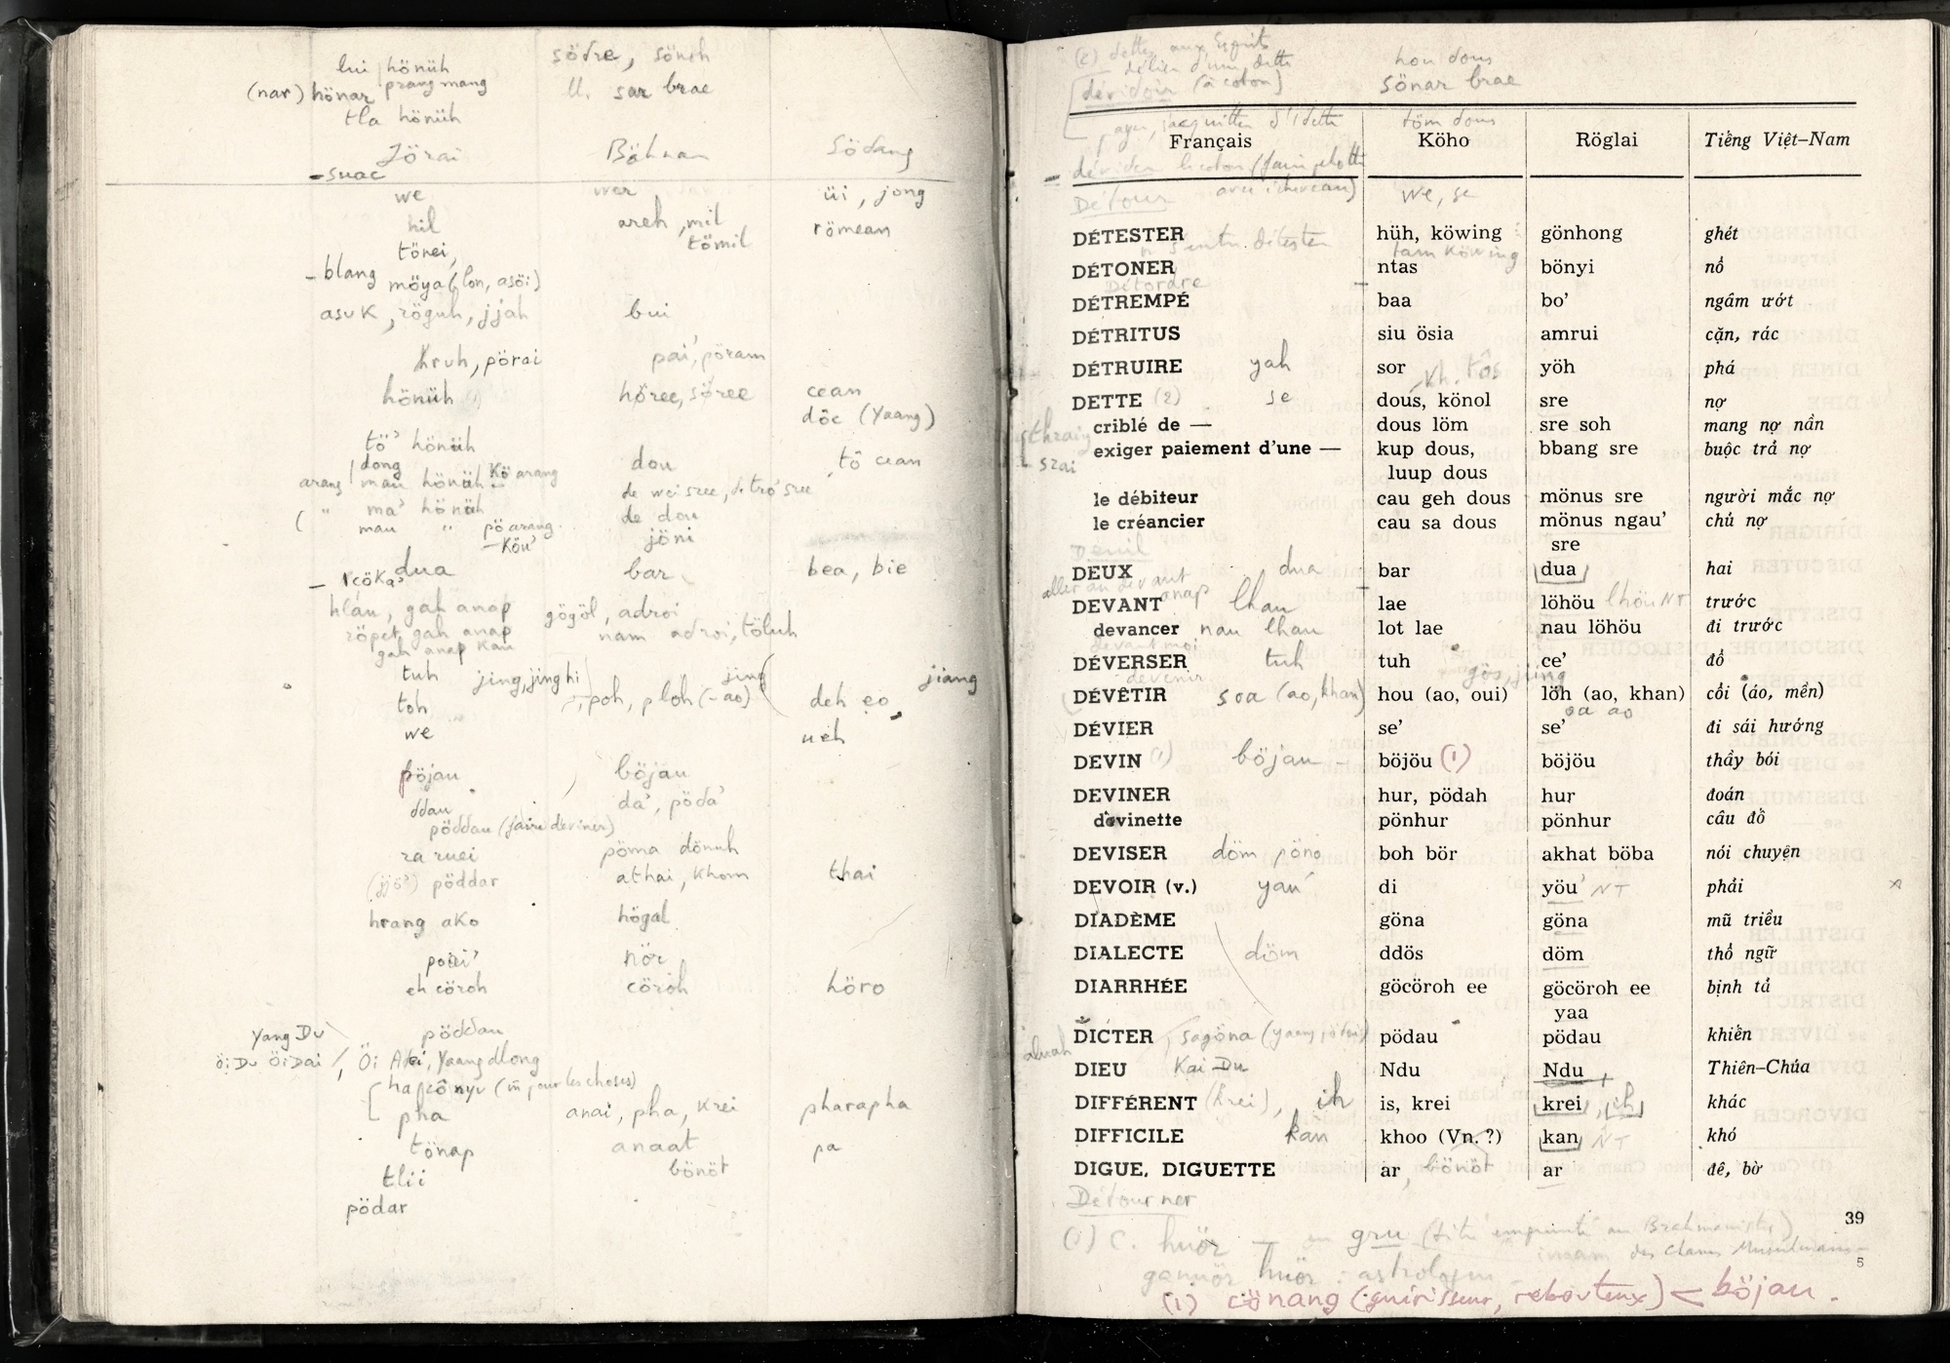 lui hönüh södre, sönoh
(nar) hönar prang mang ll. sar brae
tla hönüh
Jörai Böhnar Södang
- suac
we wer üi, jong
hil areh, mil römean
tömil
tönei,
- blang möya (lon, asöi)
asuK, röguh, jjah bui
kruh, pörai pai', pöram
hönüh höree, söree cean
dôc (Yaang)
tö' hönüh
dong dou tô cean
arang mau hönüh Kö arang
de wei sree, de trö' sree
" ma' hönüh de dou
( mau " pö arang jöni
- Köu'
dua bar bea, bie
- löka'
hlâu, gah anap gögöl, adroi
röpet gah anap nam adroi, töluh
gah anap kau
tuh jing, jing hi jing jiang
toh poh, ploh (- ao) deh eo
we ueh
pöjau böjau
ddau da', pöda'
pöddau (faire deviner)
ra ruei pöma dönuh
(jjö') pöddar athai, khom thai
hrang aKo högal
nör
eh cöroh cöroh höro
Yang Du pöddau
öi Du öi Dai /, Öi Adei, Yaang dlong
(m̃ pour les choses)
pha anai, pha, Krei pharapha
tönap anaat pa
tlii bönöt
pödar
(2) dettes aux Esprits hou dous
délier d'une dette
[dévidoir (à coton) sönar brae
payer, s'acquitter d'1 dette töm dous
Français Köho Röglai Tiếng Việt-Nam
dévider le coton (faire pelotte
avec écheveau)
Détour we, se
DÉTESTER hüh, köwing gönhong ghét
détester tam Köwing
DÉTONER ntas bönyi nổ
Détordre
DÉTREMPÉ baa bo' ngâm ướt
DÉTRITUS siu ösia amrui cặn, rác
DÉTRUIRE yah sor yöh phá
Kh. tôs
DETTE (2) se dous, könol sre nợ
criblé de — dous löm sre soh mang nợ nần
exiger paiement d'une — kup dous, bbang sre buộc trả nợ
srai luup dous
le débiteur cau geh dous mönus sre người mắc nợ
le créancier cau sa dous mönus ngau' chủ nợ
sre
Deuil
DEUX dua bar dua hai
aller au devant anap
DEVANT lhau lae löhöu lhöu NT trước
devancer nau lhau lot lae nau löhöu đi trước
devant moi
DÉVERSER tuh tuh ce' đổ
devenir gös, jiing
DÉVÊTIR soa (ao, khan) hou (ao, oui) löh (ao, khan) cổi (áo, mền)
oa ao
DÉVIER se' se' đi sái hướng
DEVIN (1) böjau - böjöu (1) böjöu thầy bói
DEVINER hur, pödah hur đoán
devinette pönhur pönhur câu đố
DEVISER döm pöno boh bör akhat böba nói chuyện
DEVOIR (v.) yau' di yöu' NT phải
DIADÈME göna göna mũ triều
DIALECTE döm ddös döm thổ ngữ
DIARRHÉE göcöroh ee göcöroh ee bịnh tả
yaa
DICTER pödau pödau khiến
DIEU Kai Du Ndu Ndu Thiên-Chúa
DIFFÉRENT (krei), ih is, krei krei, ih khác
DIFFICILE kan khoo (Vn. ?) kan NT khó
DIGUE, DIGUETTE ar, bönöt ar đê, bờ
Détourner
39
(1) C. huör — ou gru (titre emprunté au Brahmanistes)
imam des Chams Musulmans -
5
gannör huör : astrologue
(1) cönang (guérisseur, rebouteux) < böjau.